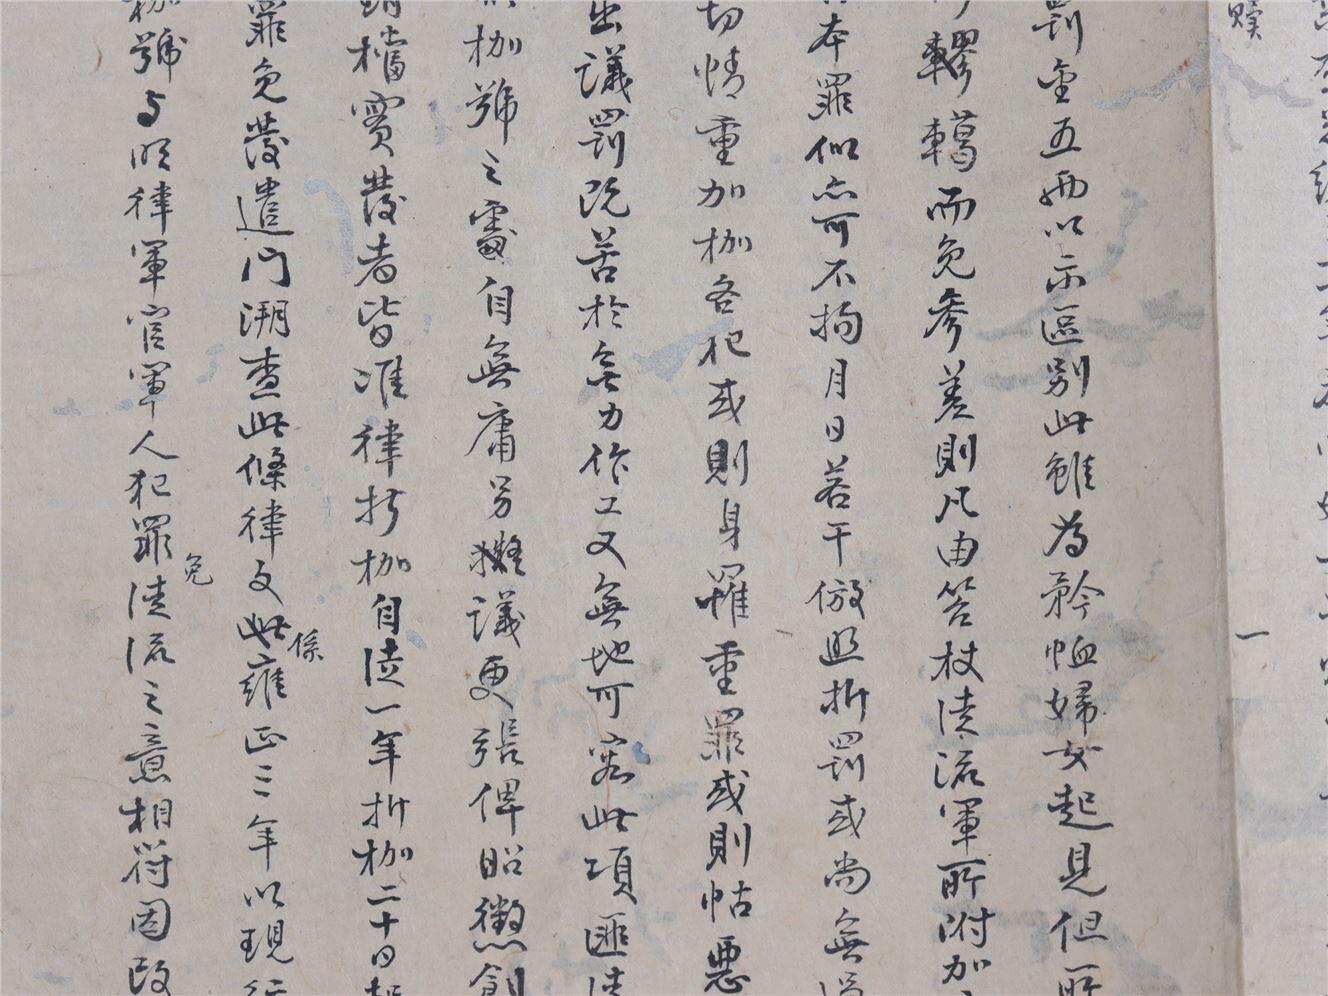 贖
一
罰金五两以示區别此雖為矜恤婦女起見但所
轇轕而免参差則凡由笞杖徒流軍所附加
本罪似亦可不拘月日若干倣照折罰或尚無
切情重加枷各犯或則身罹重罪或則怙惡
出議罰既苦於無力作工又無地可容此項匪徒
枷號之處自無庸另擬議更張俾昭懲創
銷檔實發者皆准律折枷自徒一年折枷二十日
罪免發遣門溯查此條律文此係雍正三年以現行
枷號与明律軍官軍人犯罪免徒流之意相符因改